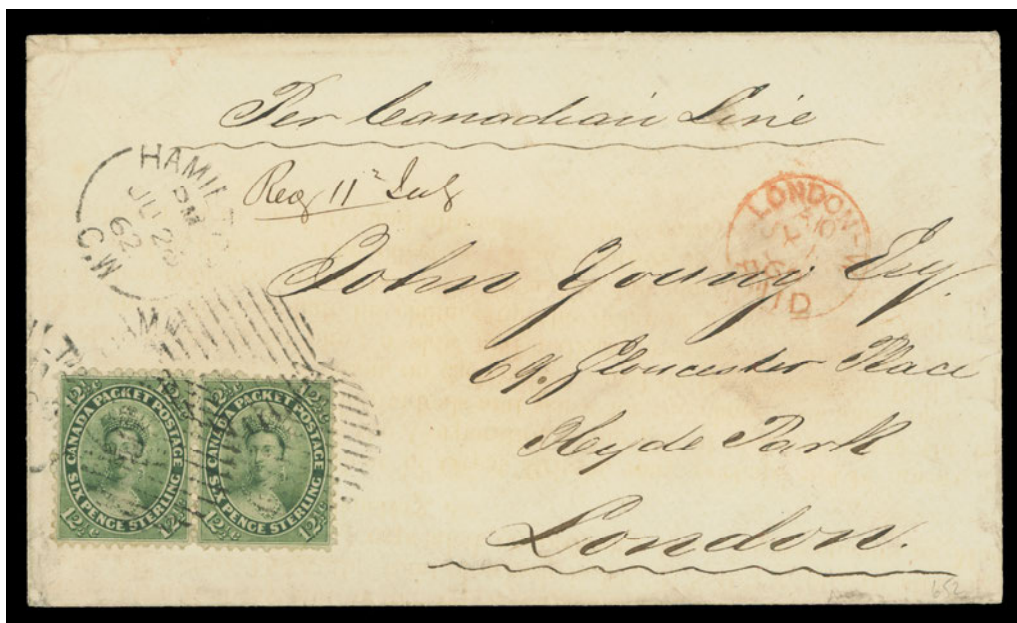 Per Canadian Line
HAMIL
PM
JU 28
62
C.W
Rec 11th July
LONDON-W
PAID
John Young Esq.
69. Gloucester Place
Hyde Park
London.
12½c 12½c
CANADA PACKET POSTAGE
SIX PENCE STERLING
12½c 12½c
12½c 12½c
CANADA PACKET POSTAGE
SIX PENCE STERLING
12½c 12½c
652